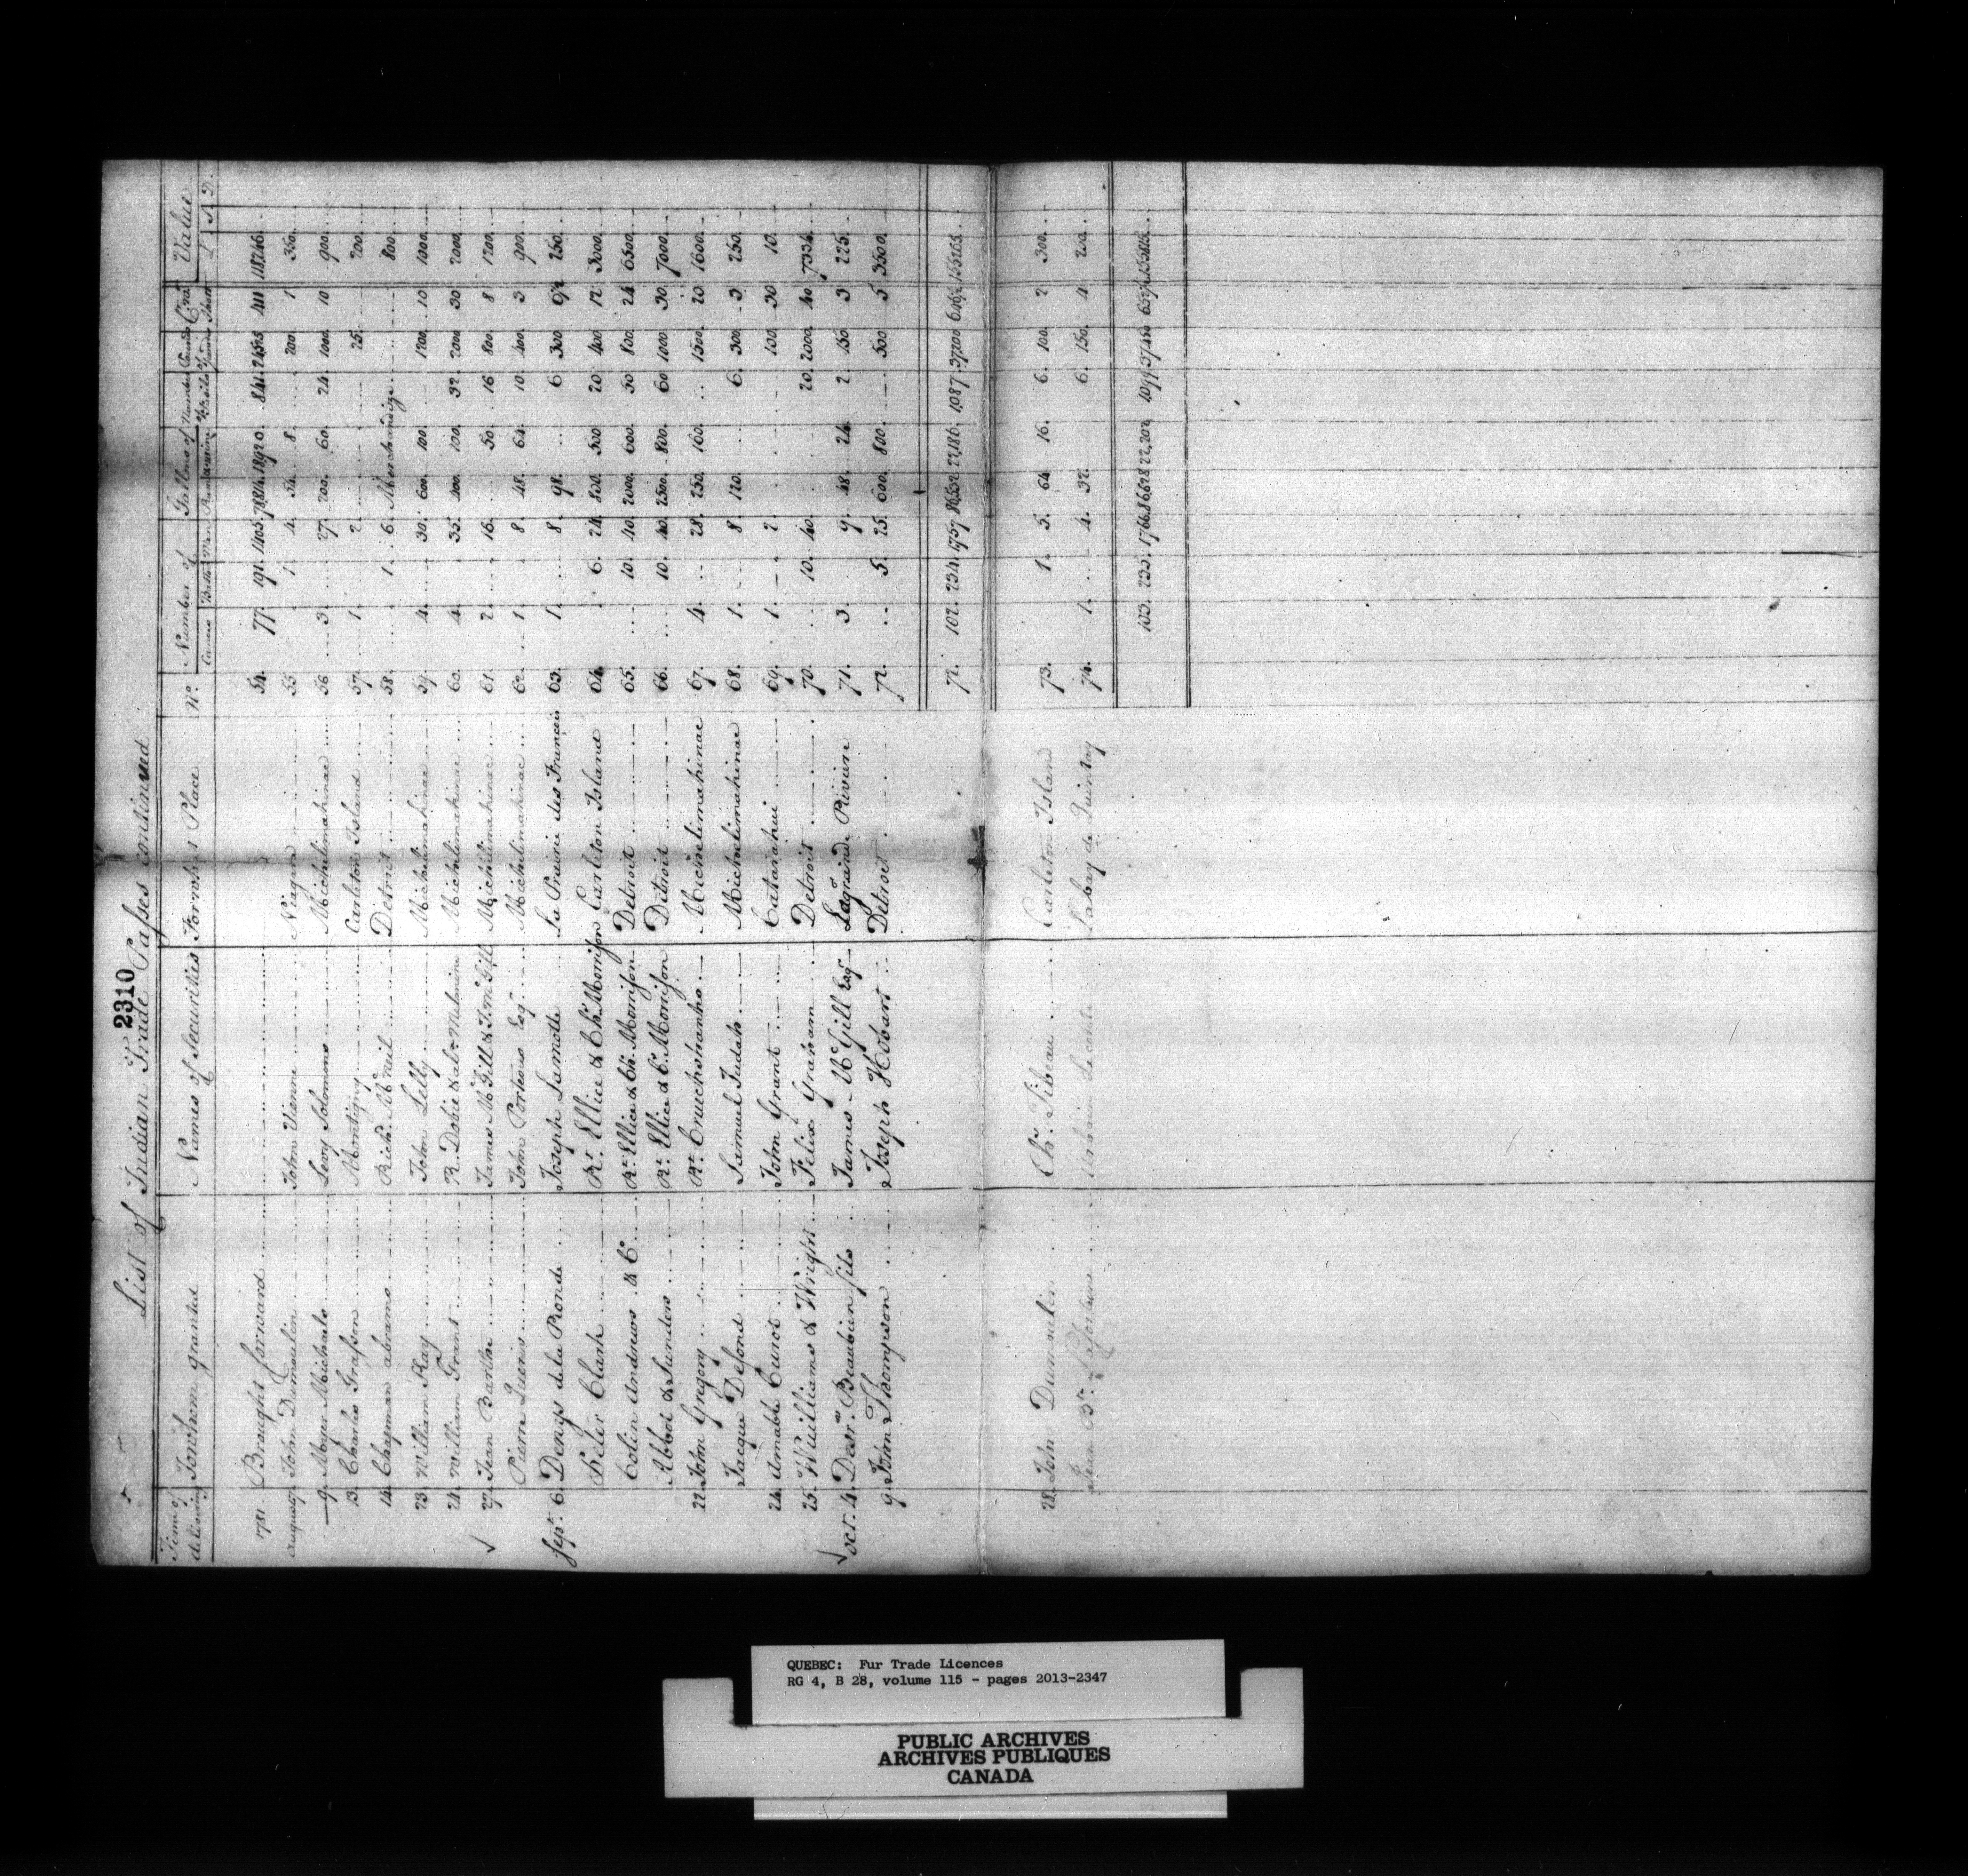 2310
List of Indian Trade Passes continued
Time of delivering | To whom granted | Names of Securities | For what Place | No. | Number of Canoes | Batto | Men | Gallons of Rum | Wine | Number of Fusils | Pounds of Powder | Cwt Shott | Value £ S D.
1781. Brought forward 54. 77. 191. 1405. 841. 411 118246
August 7. John Dumoulin John Vienne Niagara 55. 1. 4. 54. 8. 200. 1 350.
9. Myer Michaels Levy Solomons Michilimakinac 56 3. 27. 200. 60. 24. 1000. 10 900.
13. Charles Grasson Montigny Carleton Island 57. 1. 2. 25. 200.
14. Chapman abrams Rich. McNeil Detroit 58. 1. 6. Merchandize 800.
23. William Kay John Lilly Michilimakinac 59. 4. 30. 600. 100. 1200. 10 1000.
24. William Grant R. Dobie & Michilimakinac 60. 4. 35. 400. 100. 32. 2000 30 2000.
27. Jean Barthe James McGill & Jno McGill Michilimakinac 61. 2. 16. 50. 16 800. 8 1200.
Pierre John Porteous Esqr. Michilimakinac 62. 1. 8. 48. 64. 10. 400. 3 900.
Sept. 6. Denys de la Ronde Joseph Lamotte La Prairie des Francois 63. 1. 8. 98. 6 300 250.
Peter Clark Rd. Ellice & Ch. Morrison Carleton Island 64. 6. 24. 800. 500 20 400 12 3000.
Colin Andrews & Co. Rt. Ellice & Ch. Morrison Detroit 65. 10. 40. 2000. 600. 50 800. 24 6500.
Abbot & Sanders Rt. Ellice & C. Morrison Detroit 66. 10. 40. 2500. 800. 60 1000 30. 7000.
22. John Gregory Rt. Cruickshanks Michelimakinac 67. 4. 28. 250. 160. 1500. 20 1600.
Jacque Delford Samuel Judah Michelimakinac 68. 1. 8. 120. 6. 300 3 250.
24. Amable Curot John Grant Catarahui 69. 1. 2. 100. 30 10.
25. Williams & Wright Felix Graham Detroit 70. 10. 40. 20. 2000 40. 7334.
Oct. 4. Desr. Beaubien fils James McGill Esqr Lagrand Rivier 71. 3. 9. 48. 24. 2 150 3 225.
9. John Thompson Joseph Hobart Detroit 72. 5. 25. 600. 800. 500 5 3500.
72. 102. 234. 1757 1,087. 37200
28. John Dumoulin Ch. Fibeau Carleton Island 73. 1. 5. 64 16. 6. 100. 2 300.
Jean Bte. Urbain Labay de Quinty 74. 1. 4. 32. 6. 150. 4 250.
103. 235. 1766. 22,202 1099. 37450
QUEBEC: Fur Trade Licences
RG 4, B 28, volume 115 - pages 2013-2347
PUBLIC ARCHIVES
ARCHIVES PUBLIQUES
CANADA